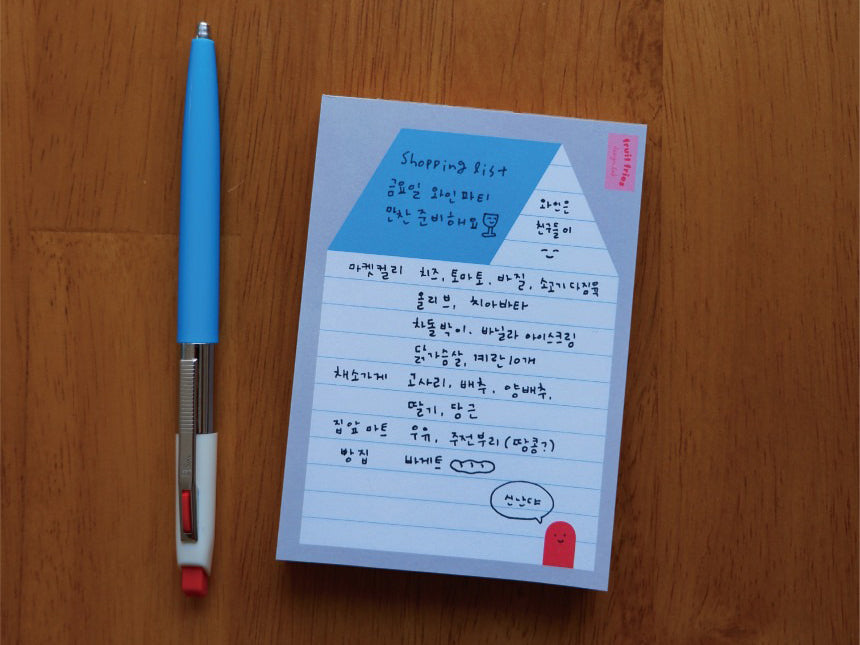 fruitfries
Shopping list
금요일 와인파티
만찬 준비해요
와인은
친구들이
마켓컬리 치즈, 토마토, 바질, 소고기다짐육
올리브, 치아바타
차돌박이. 바닐라 아이스크림
닭가슴살, 계란10개
채소가게 고사리, 배추, 양배추,
딸기, 당근
집앞마트 우유, 주전부리(땅콩?)
빵집 바게트
신난다